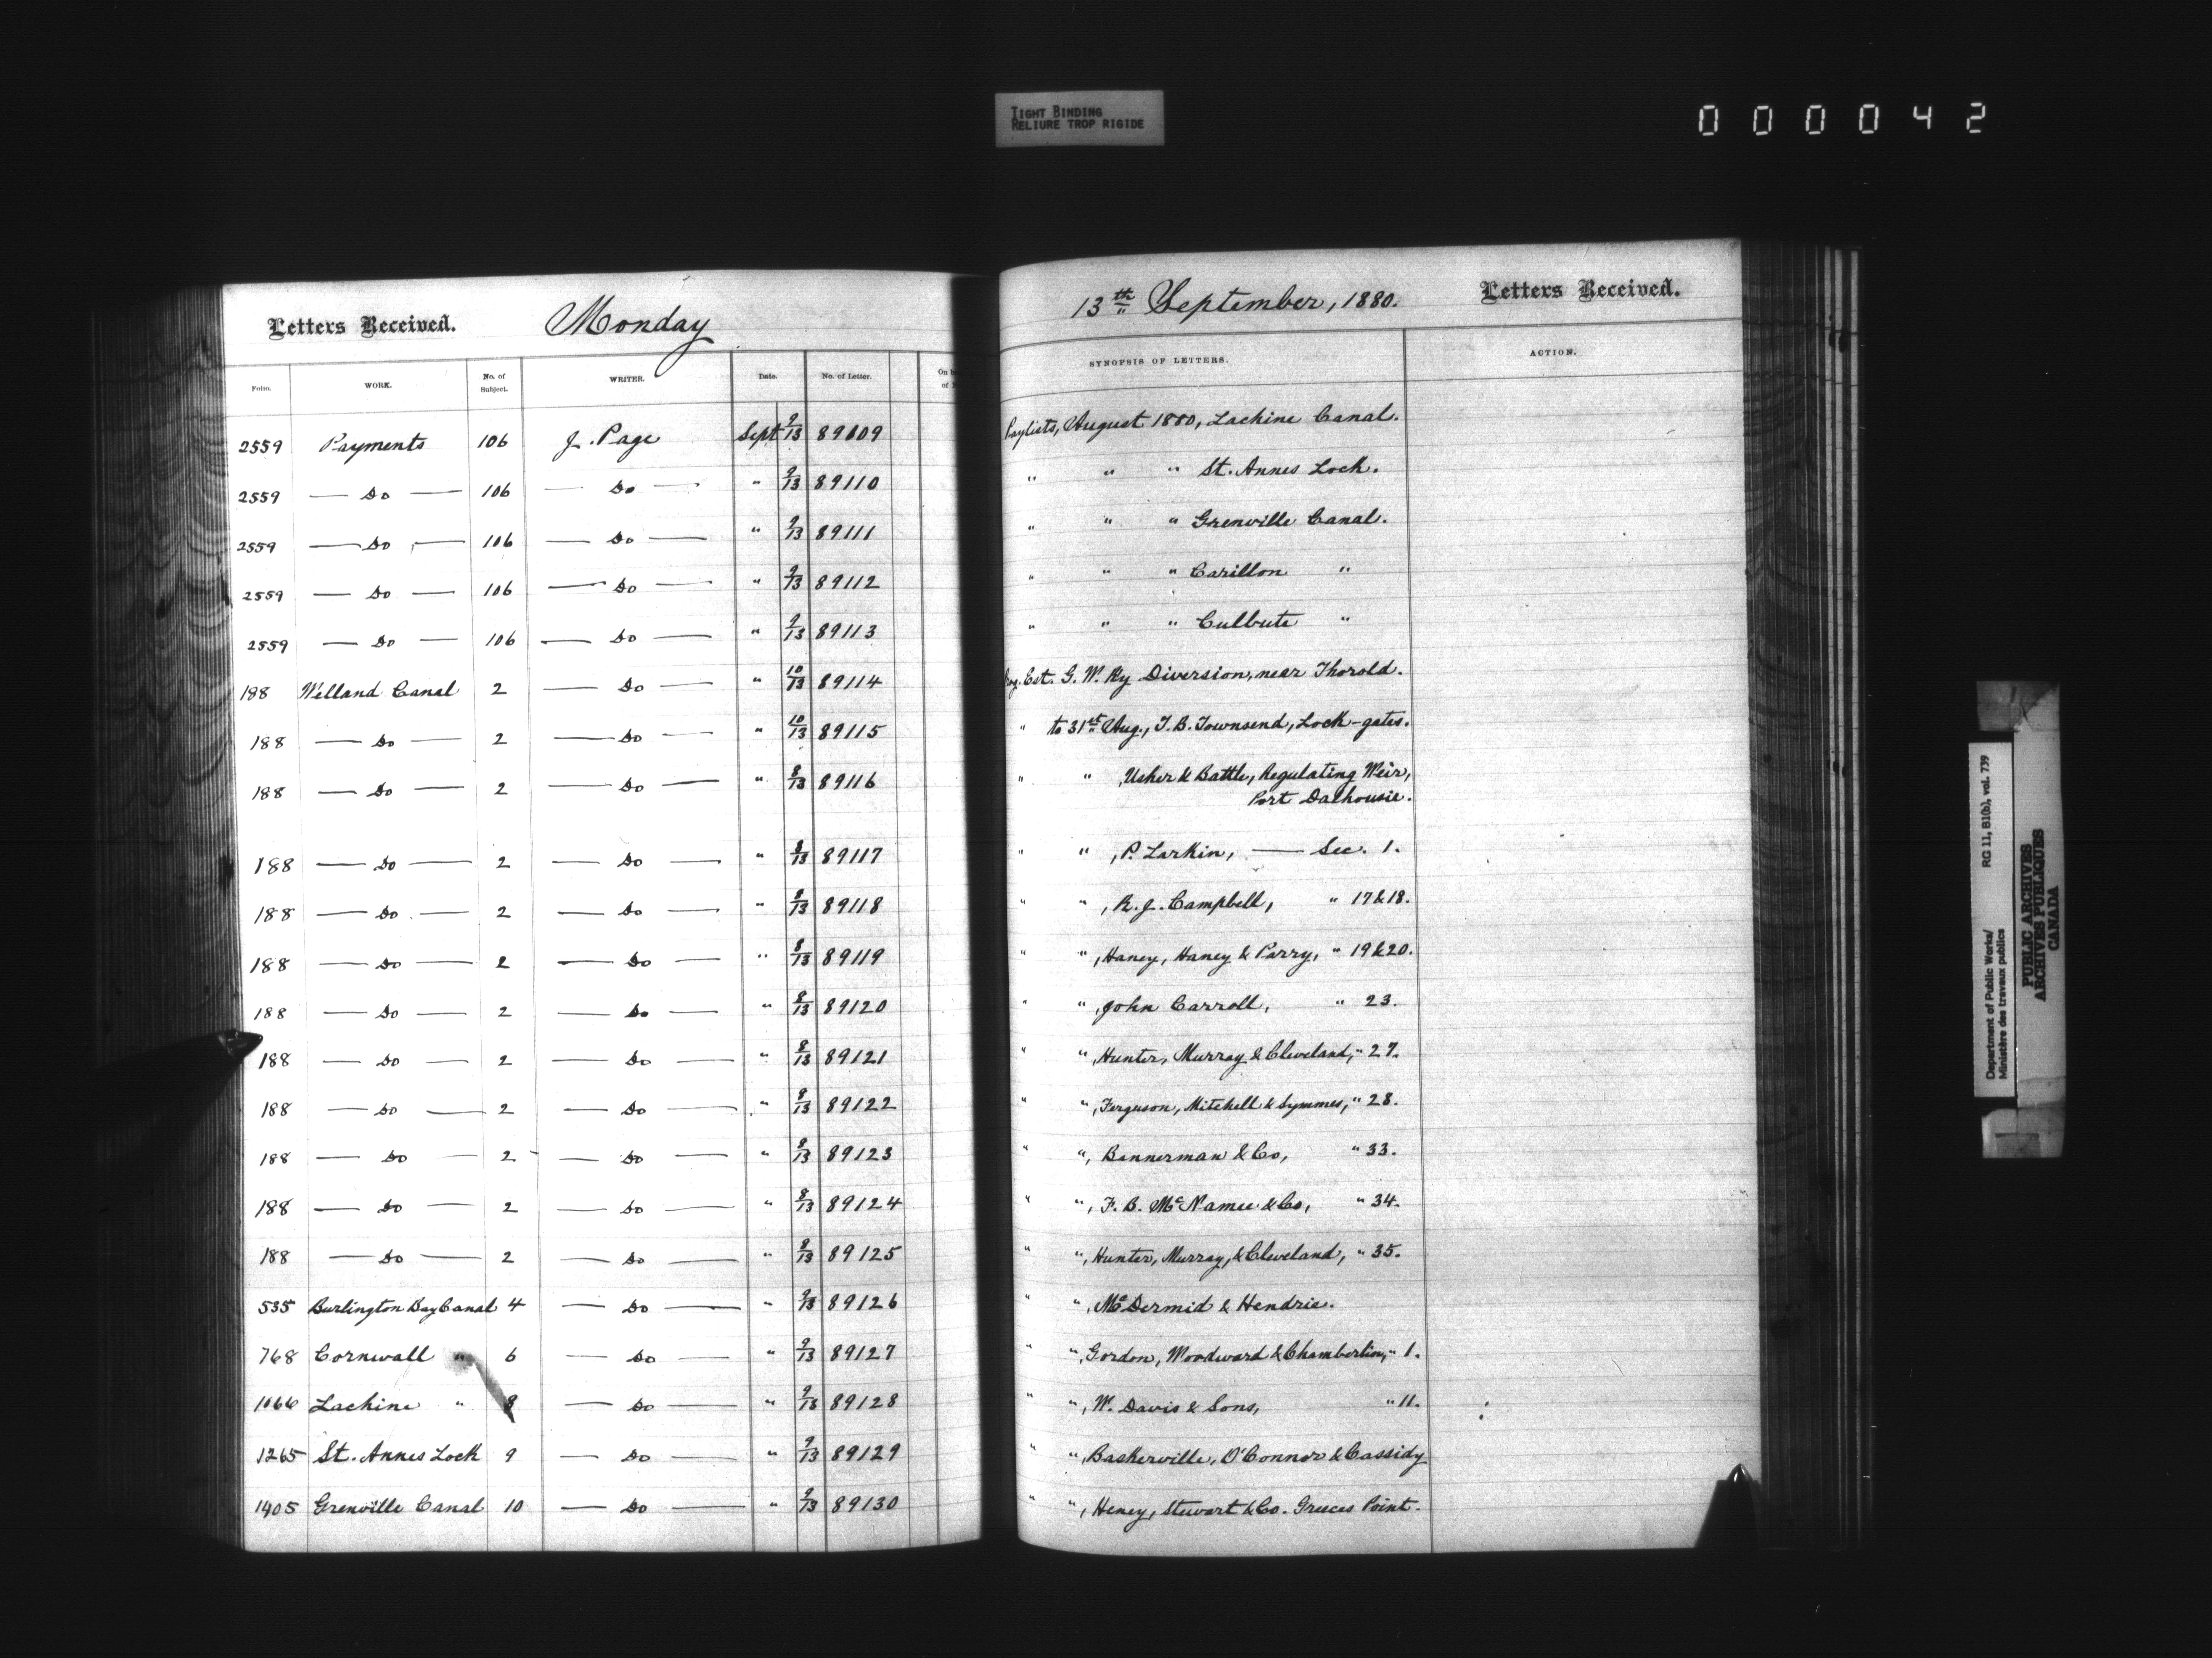 TIGHT BINDING
RELIURE TROP RIGIDE
000042
Letters Received. Monday
13th September, 1880. Letters Received.
Folio. WORK. No. of Subject. WRITER. Date. No. of Letter. On b
of
SYNOPSIS OF LETTERS. ACTION.
2559 Payments 106 J. Page Sept 9/13 89109 Paylists, August 1880, Lachine Canal.
2559 — Do — 106 — Do — " 9/13 89110 " " " St. Annes Lock.
2559 — Do — 106 — Do — " 9/13 89111 " " " Grenville Canal.
2559 — Do — 106 — Do — " 9/13 89112 " " " Carillon "
2559 — Do — 106 — Do — " 9/13 89113 " " " Culbute "
188 Welland Canal 2 — Do — " 10/13 89114 Prog. Est. G. W. Ry Diversion, near Thorold.
188 — Do — 2 — Do — " 10/13 89115 " to 31st Aug., T. B. Townsend, Lock-gates.
188 — Do — 2 — Do — " 8/13 89116 " " , Usher & Battle, Regulating Weir,
Port Dalhousie.
188 — Do — 2 — Do — " 8/13 89117 " " , P. Larkin, — Sec. 1.
188 — Do — 2 — Do — " 8/13 89118 " " , R. J. Campbell, " 17 & 18.
188 — Do — 2 — Do — " 8/13 89119 " " , Haney, Haney & Parry, " 19 & 20.
188 — Do — 2 — Do — " 8/13 89120 " " , John Carroll, " 23.
188 — Do — 2 — Do — " 8/13 89121 " " , Hunter, Murray & Cleveland, " 27.
188 — Do — 2 — Do — " 8/13 89122 " " , Ferguson, Mitchell & Symmes, " 28.
188 — Do — 2 — Do — " 8/13 89123 " " , Bannerman & Co, " 33.
188 — Do — 2 — Do — " 8/13 89124 " " , F. B. McNamee & Co, " 34.
188 — Do — 2 — Do — " 8/13 89125 " " , Hunter, Murray, & Cleveland, " 35.
535 Burlington Bay Canal 4 — Do — " 9/13 89126 " " , McDermid & Hendrie.
768 Cornwall " 6 — Do — " 9/13 89127 " " , Gordon, Woodward & Chamberlin, " 1.
1066 Lachine " 8 — Do — " 9/13 89128 " " , W. Davis & Sons, " 11.
1265 St. Annes Lock 9 — Do — " 9/13 89129 " " , Baskerville, O'Connor & Cassidy
1405 Grenville Canal 10 — Do — " 9/13 89130 " " , Heney, Stewart & Co. Greeces Point.
Department of Public Works/ RG 11, B1(b), vol. 739
Ministère des travaux publics
PUBLIC ARCHIVES
ARCHIVES PUBLIQUES
CANADA